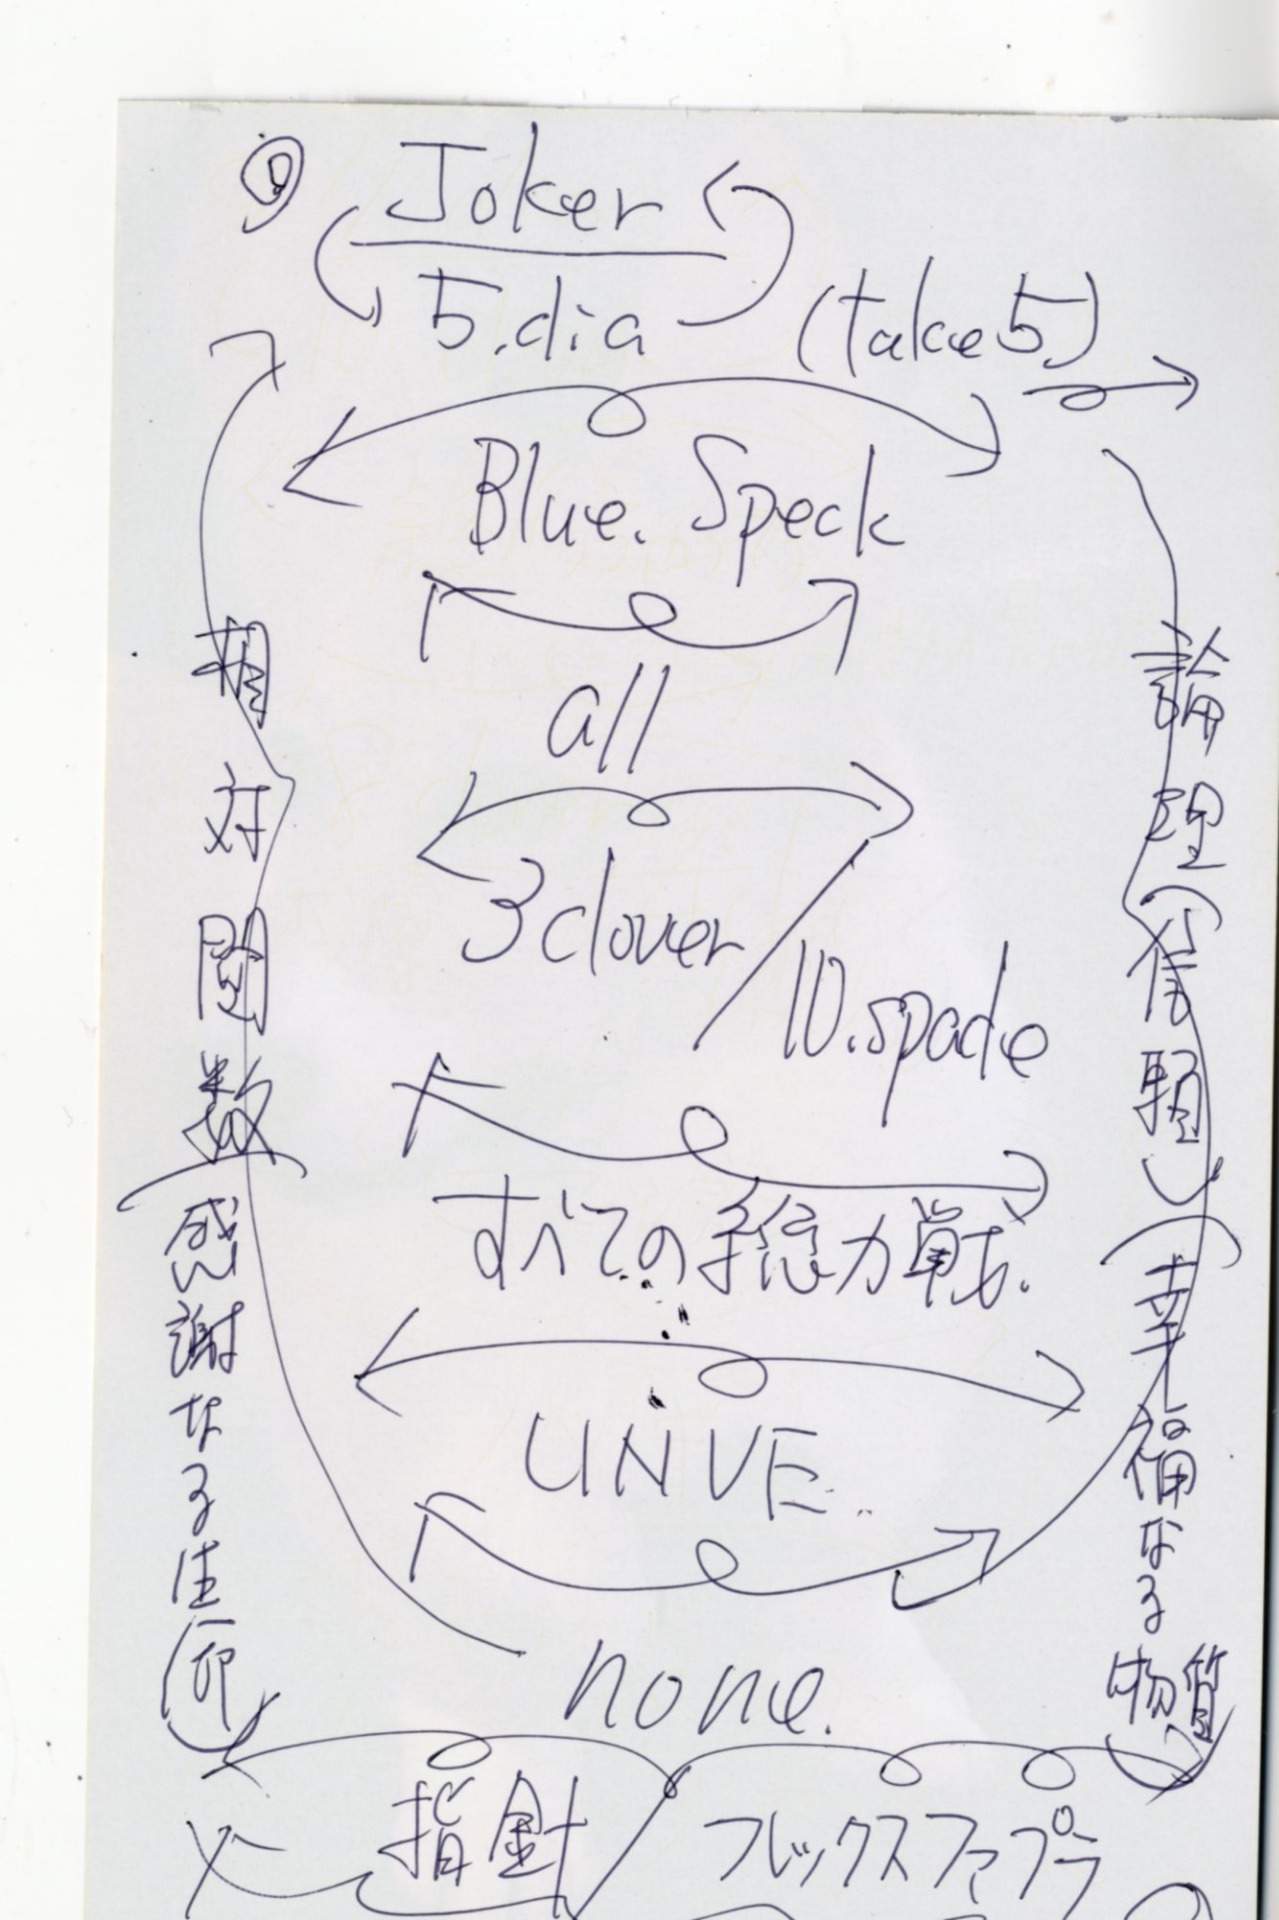 Joker
5.dia (take5)
Blue. Speck
all
3clover/10.spade
すべての総力戦.
UNVE.
none.
指針/フレックスファプラ
相対関数
(感謝なる生命)
論理(信頼)
(幸福なる物質)